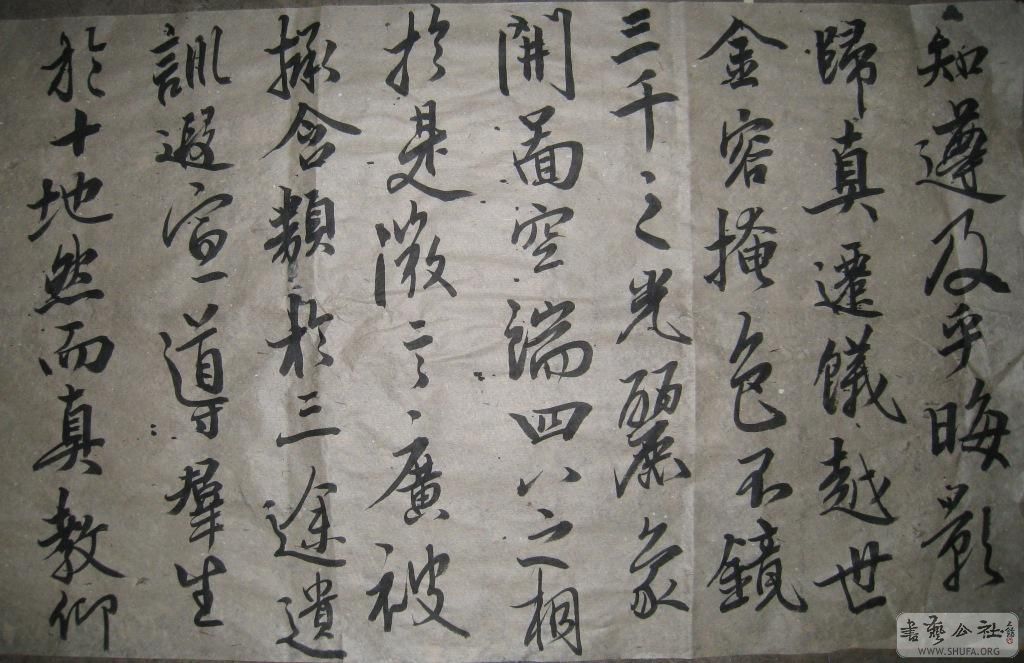 知遵及乎晦影
歸真遷儀越世
金容掩色不鏡
三千之光麗象
開圖空端四八之相
於是微言廣被
拯含類於三途遺
訓遐宣導群生
於十地然而真教仰
書藝公社
WWW.SHUFA.ORG